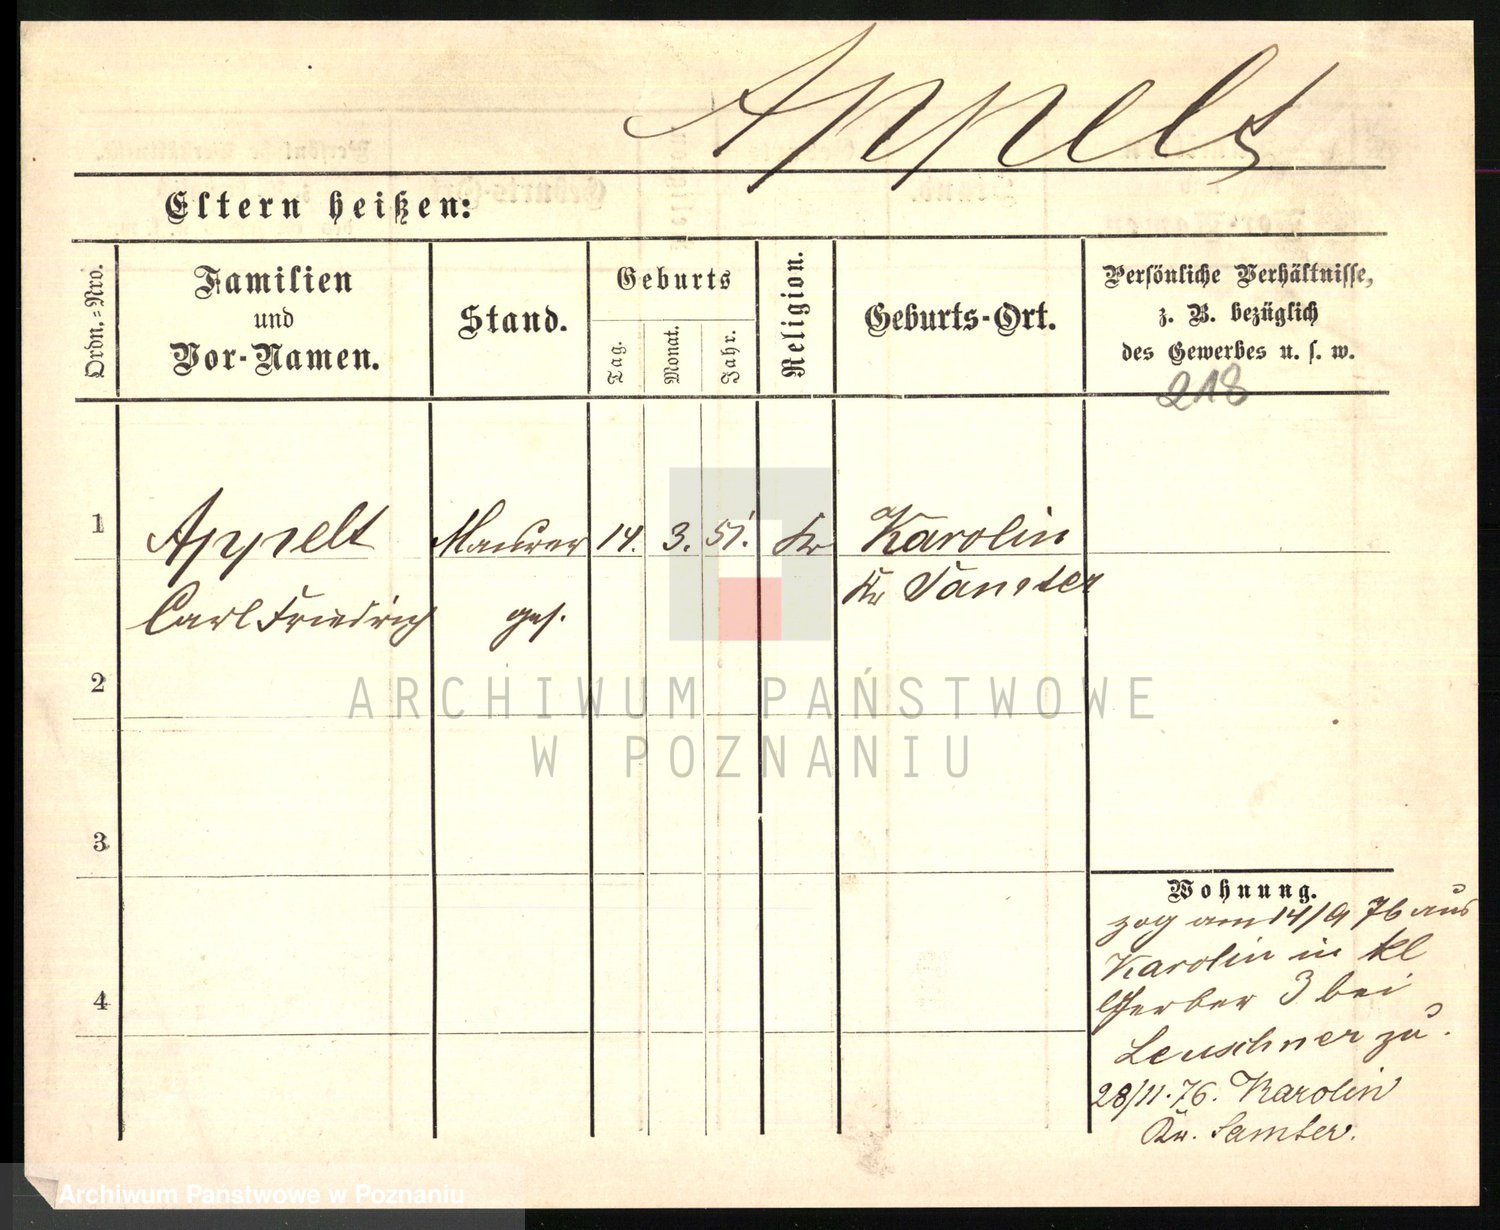 Appelt
Eltern heißen:
Ordn.=Nro.
Familien
und
Vor-Namen.
Stand.
Geburts
Tag.
Monat.
Jahr.
Religion.
Geburts-Ort.
Persönliche Verhältnisse,
z. B. bezüglich
des Gewerbes u. s. w.
218
1
Appelt
Maurer
14.
3.
51.
Karolin
Carl Friedrich
ges.
Kr Samter
2
ARCHIWUM PAŃSTWOWE
W POZNANIU
3
Wohnung.
zog am 14/9 76 aus
Karolin in kl
4
Gerber 3 bei
Leuschner zu.
28/11.76. Karolin
Kr. Samter.
Archiwum Panstwowe w Poznaniu